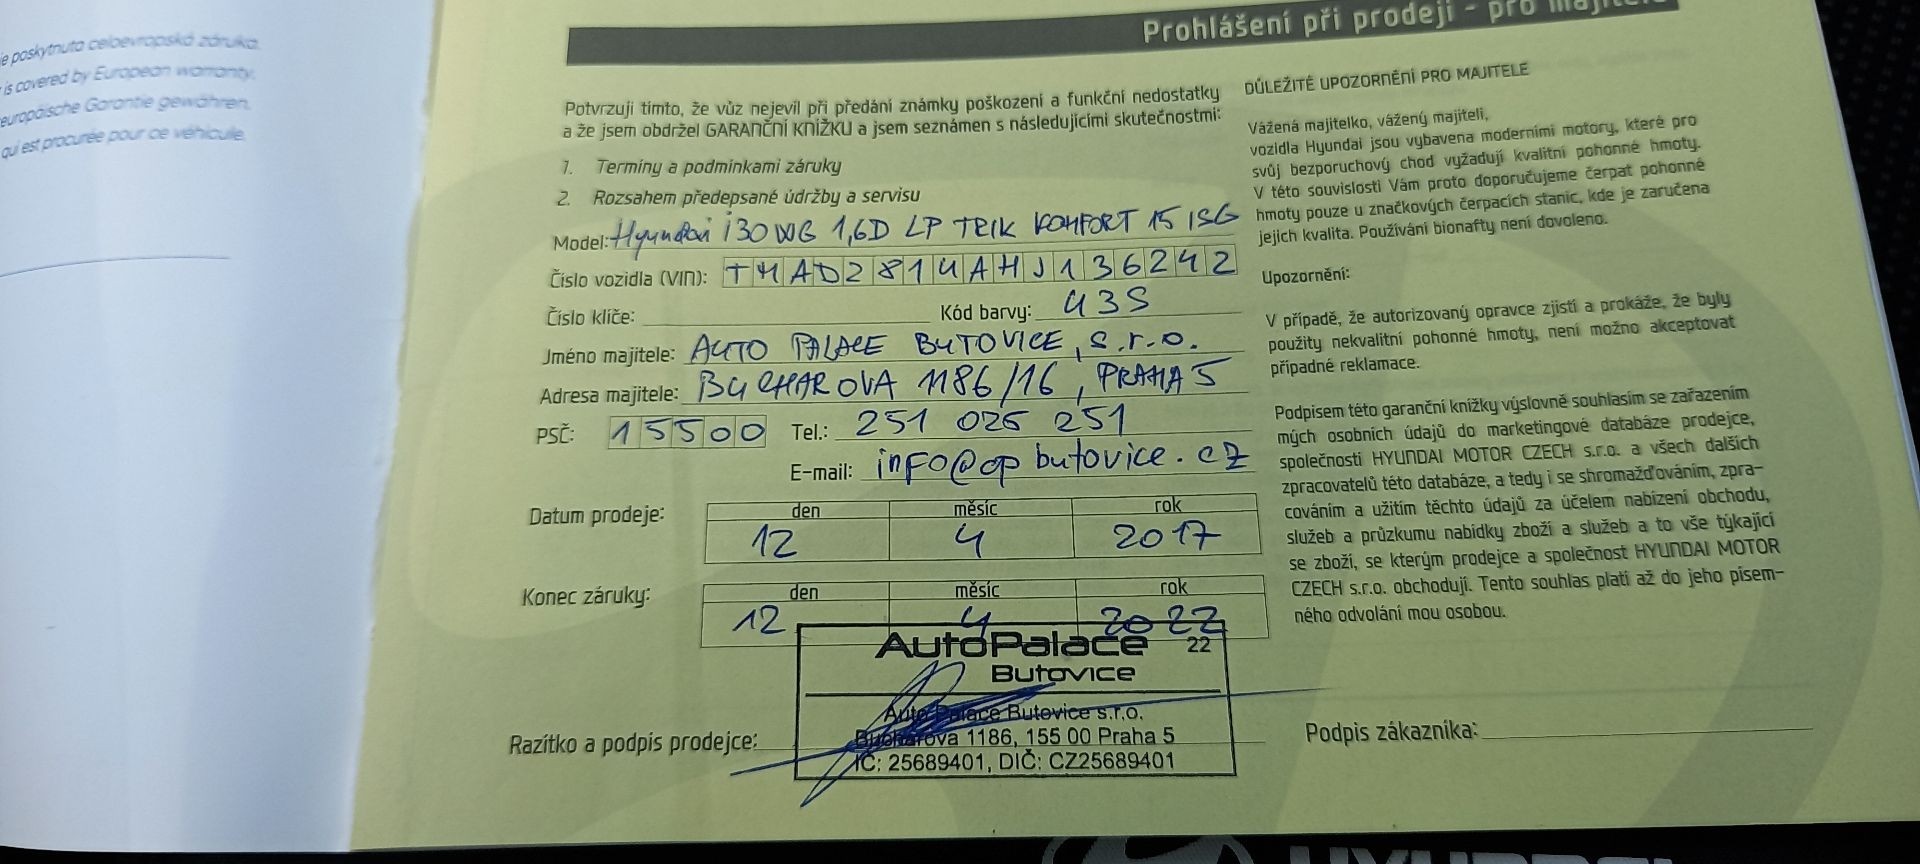 je poskytnuta celoevropská záruka.
is covered by European warranty.
europäische Garantie gewähren.
qui est procurée pour ce véhicule.
Prohlášení při prodeji - pro majitele
Potvrzuji tímto, že vůz nejevil při předání známky poškození a funkční nedostatky
a že jsem obdržel GARANČNÍ KNÍŽKU a jsem seznámen s následujícími skutečnostmi:
1. Termíny a podmínkami záruky
2. Rozsahem předepsané údržby a servisu
Model: Hyundai i30 WG 1,6D LP TRIK KOMFORT 15 ISG
Číslo vozidla (VIN): TMAD2814AHJ136242
Číslo klíče: Kód barvy: 43S
Jméno majitele: AUTO PALACE BUTOVICE, s.r.o.
Adresa majitele: BUCHAROVA 1186/16, PRAHA 5
PSČ: 15500 Tel.: 251 026 251
E-mail: info@apbutovice.cz
Datum prodeje: den měsíc rok
12 4 2017
Konec záruky: den měsíc rok
12 4 2022
AutoPalace 22
Butovice
Auto Palace Butovice s.r.o.
Bucharova 1186, 155 00 Praha 5
Razítko a podpis prodejce:
IČ: 25689401, DIČ: CZ25689401
DŮLEŽITÉ UPOZORNĚNÍ PRO MAJITELE
Vážená majitelko, vážený majiteli,
vozidla Hyundai jsou vybavena moderními motory, které pro
svůj bezporuchový chod vyžadují kvalitní pohonné hmoty.
V této souvislosti Vám proto doporučujeme čerpat pohonné
hmoty pouze u značkových čerpacích stanic, kde je zaručena
jejich kvalita. Používání bionafty není dovoleno.
Upozornění:
V případě, že autorizovaný opravce zjistí a prokáže, že byly
použity nekvalitní pohonné hmoty, není možno akceptovat
případné reklamace.
Podpisem této garanční knížky výslovně souhlasím se zařazením
mých osobních údajů do marketingové databáze prodejce,
společnosti HYUNDAI MOTOR CZECH s.r.o. a všech dalších
zpracovatelů této databáze, a tedy i se shromažďováním, zpra-
cováním a užitím těchto údajů za účelem nabízení obchodu,
služeb a průzkumu nabídky zboží a služeb a to vše týkající
se zboží, se kterým prodejce a společnost HYUNDAI MOTOR
CZECH s.r.o. obchodují. Tento souhlas platí až do jeho písem-
ného odvolání mou osobou.
Podpis zákazníka:
HYUNDAI